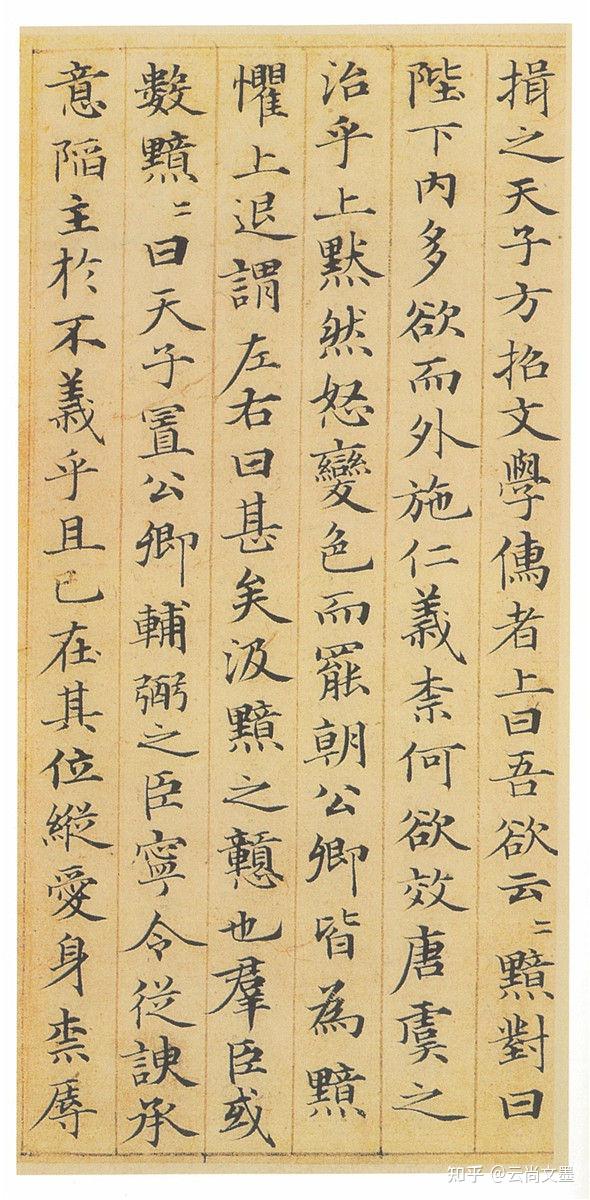 揖之天子方招文學儒者上曰吾欲云〻黯對曰
陛下内多欲而外施仁義柰何欲效唐虞之
治乎上黙然怒變色而罷朝公卿皆為黯
懼上退謂左右曰甚矣汲黯之戇也羣臣或
數黯〻曰天子置公卿輔弼之臣寧令從諛承
意陷主於不義乎且已在其位縱愛身柰辱
知乎 @云尚文墨